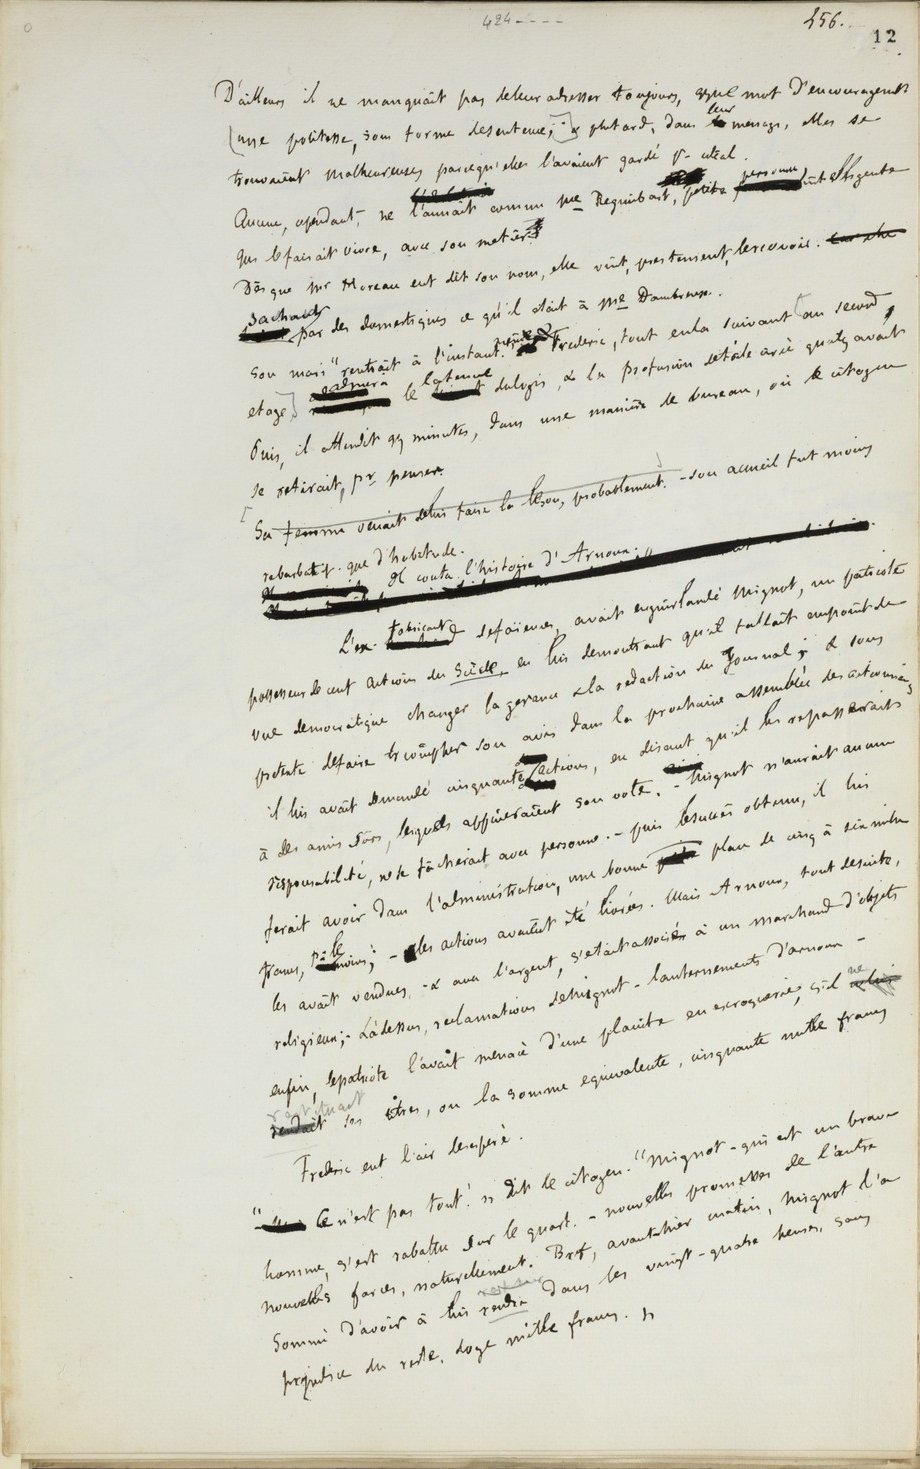 424 - - - -
456.
12
D'ailleurs il ne manquait pas de leur adresser toujours, qque mot d'encouragement
une politesse, sous forme de sentence; & plus tard, dans leur menage, elles se
trouvaient malheureuses parcequ'elles l'avaient gardé pr idéal.
Aucune, cependant, ne l'aimait comme Me Regimbart, petite personne intelligente
qui le faisait vivre, avec son metier
Dès que Mr Moreau eut dit son nom, elle vint, prestement, le recevoir.
sachant par des domestiques ce qu'il était à Me Dambreuse.
son mari "rentrait à l'instant." Frederic, tout en la suivant au second
etage, admira la tenue du logis, & la profusion de toile cirée qu'il y avait
Puis, il attendit qq minutes, dans une manière de bureau, où le citoyen
se retirait, pr penser.
Sa femme venait de lui faire la leçon, probablement. - son accueil fut moins
rebarbatif que d'habitude.
Il conta l'histoire d'Arnoux.
L'ex-fabricant de faïences, avait enguirlandé Mignot, un patriote
possesseur de cent actions du Siècle, en lui demontrant qu'il fallait au point de
vue democratique changer la gerance & la redaction du Journal; & sous
pretexte de faire triompher son avis dans la prochaine assemblée des actionnaires
il lui avait demandé cinquante actions, en disant qu'il les repasserait
à des amis sûrs, lesquels appuieraient son vote. - Mignot n'aurait aucune
responsabilité, ne se fâcherait avec personne. - puis le succès obtenu, il lui
ferait avoir dans l'administration, une bonne place de cinq à six mille
francs, pr le moins; - les actions avaient été livrées. Mais Arnoux, tout de suite,
les avait vendues, - & avec l'argent, s'était associé à un marchand d'objets
religieux; - Là dessus, reclamations de Mignot - lanternements d'Arnoux -
enfin, le patriote l'avait menacé d'une plainte en escroquerie, s'il ne
restituait ses titres, ou la somme equivalente, cinquante mille francs
Frederic eut l'air desespéré.
" Ce n'est pas tout! » dit le citoyen. "Mignot - qui est un brave
homme, s'est rabattu sur le quart. - nouvelles promesses de l'autre
nouvelles farces, naturellement. Bref, avant-hier matin, Mignot l'a
Sommé d'avoir à lui rendre dans les vingt-quatre heures, sans
prejudice du reste, doze mille francs. »